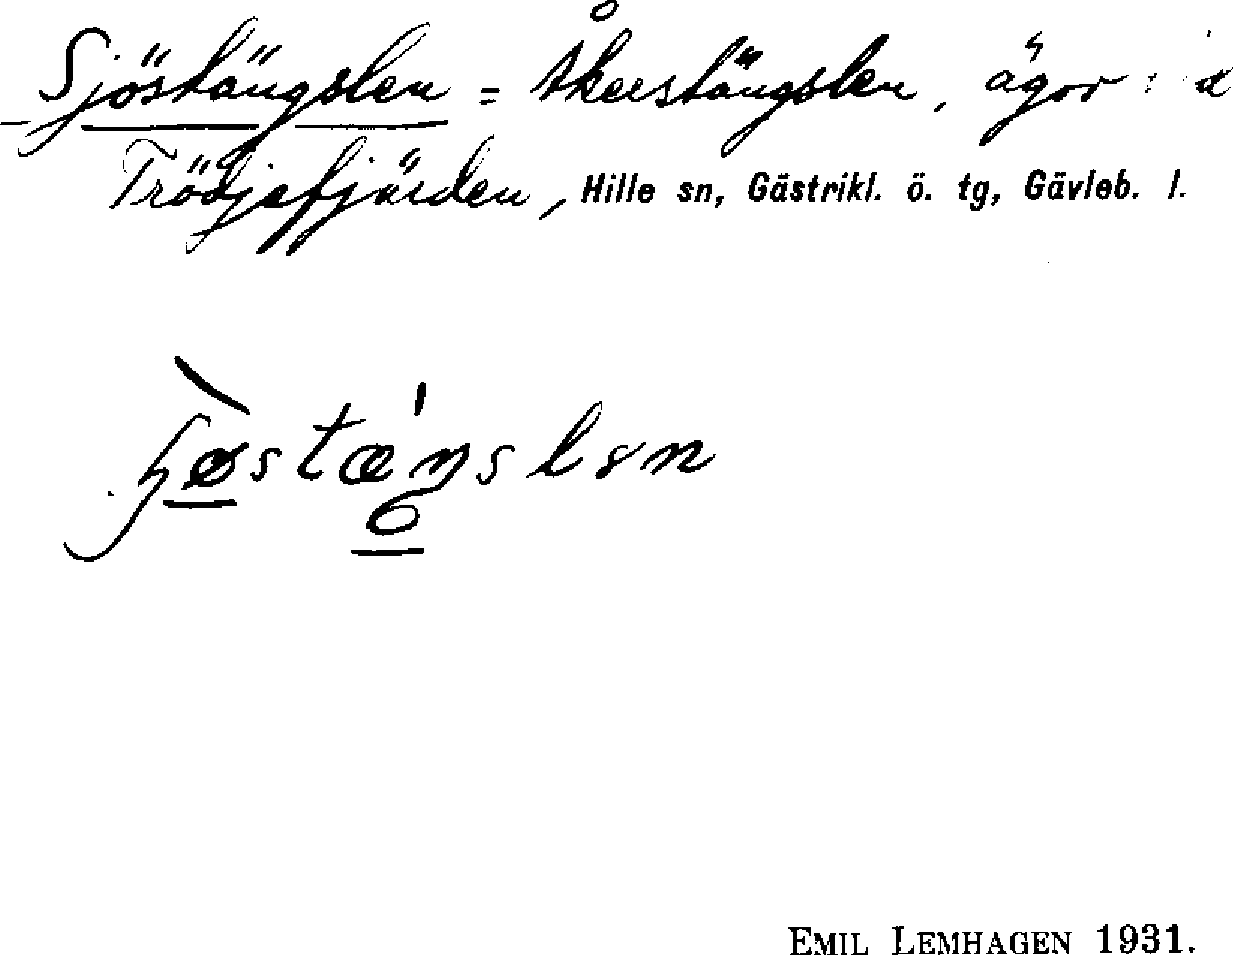 Sjöstängslen = Åkerstängslen, ägor i
Trödjefjärden, Hille sn, Gästrikl. ö. tg, Gävleb. l.
EMIL LEMHAGEN 1931.